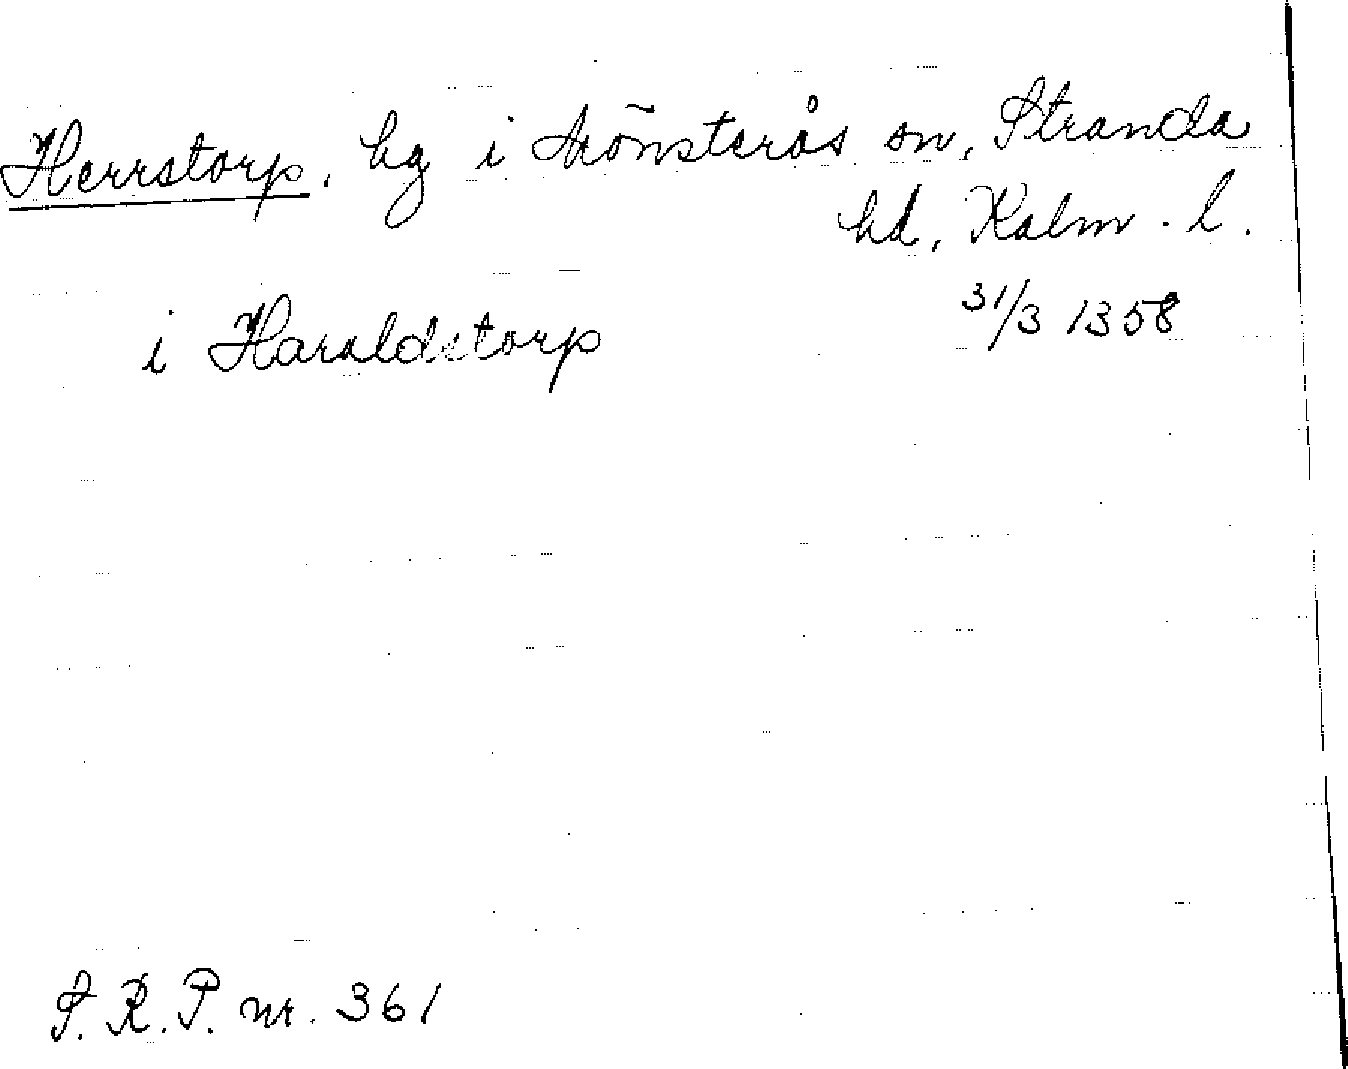 Herrstorp, hg i Mönsterås sn, Stranda
hd, Kalm. l.
i Haraldstorp
31/3 1358
S.R.P. nr. 361